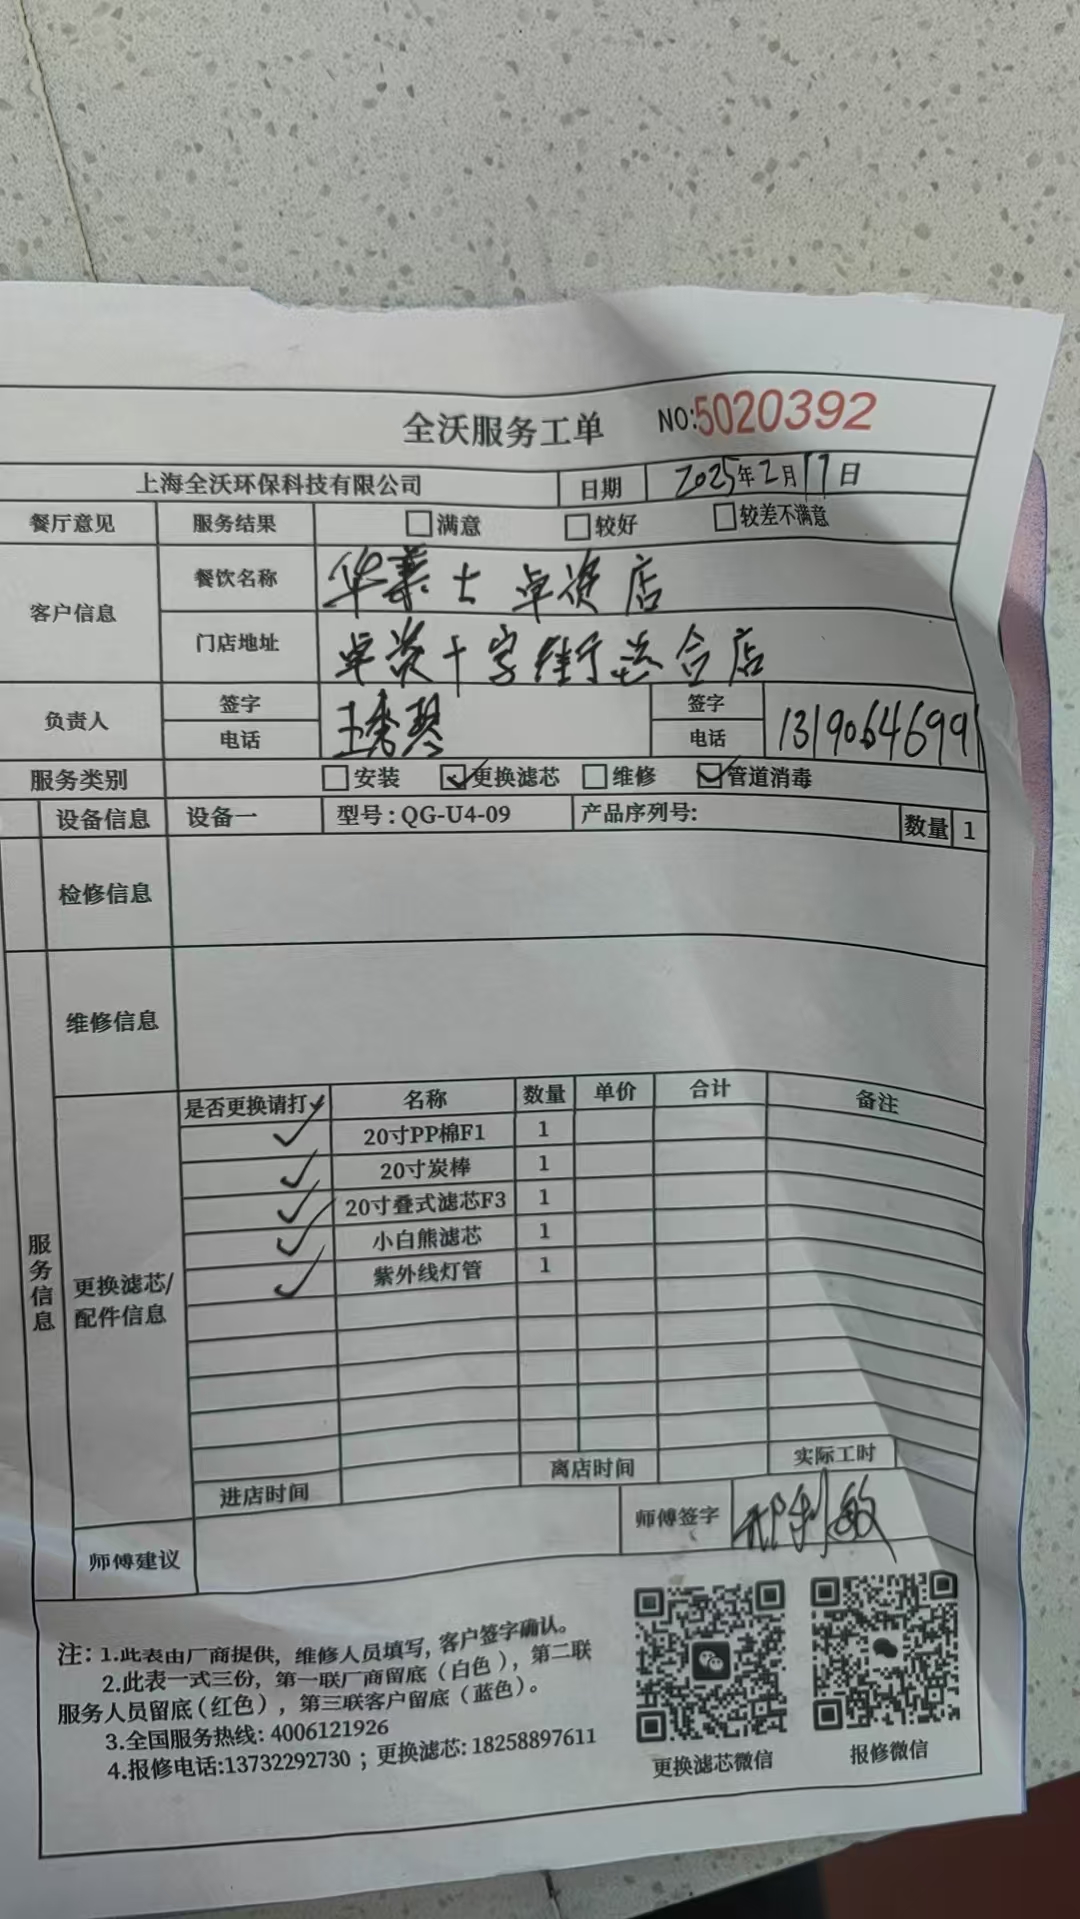 全沃服务工单 NO:5020392
上海全沃环保科技有限公司 日期 2025年2月17日
餐厅意见 服务结果 满意 较好 较差不满意
客户信息 餐饮名称 华莱士 卓资店
门店地址 卓资十字街 合店
负责人 签字 王秀琴 签字
电话 电话 13190646991
服务类别 安装 更换滤芯 维修 管道消毒
设备信息 设备一 型号:QG-U4-09 产品序列号: 数量 1
检修信息
维修信息
服务信息
更换滤芯/
配件信息
是否更换请打✓ 名称 数量 单价 合计 备注
✓ 20寸PP棉F1 1
✓ 20寸炭棒 1
✓ 20寸叠式滤芯F3 1
✓ 小白熊滤芯 1
✓ 紫外线灯管 1
进店时间 离店时间 实际工时
师傅建议 师傅签字
注:1.此表由厂商提供,维修人员填写,客户签字确认。
2.此表一式三份,第一联厂商留底(白色),第二联
服务人员留底(红色),第三联客户留底(蓝色)。
3.全国服务热线:4006121926
4.报修电话:13732292730;更换滤芯:18258897611
更换滤芯微信 报修微信